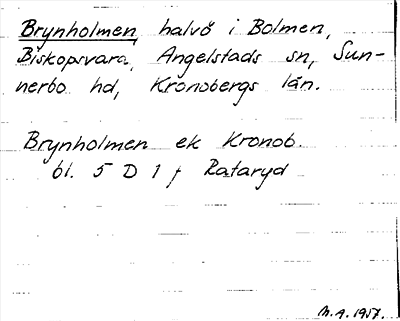 Brynholmen, halvö i Bolmen,
Biskopsvara, Angelstads sn, Sun-
nerbo hd, Kronobergs län.
Brynholmen ek Kronob.
bl. 5 D 1 f Rataryd
M.A. 1957.